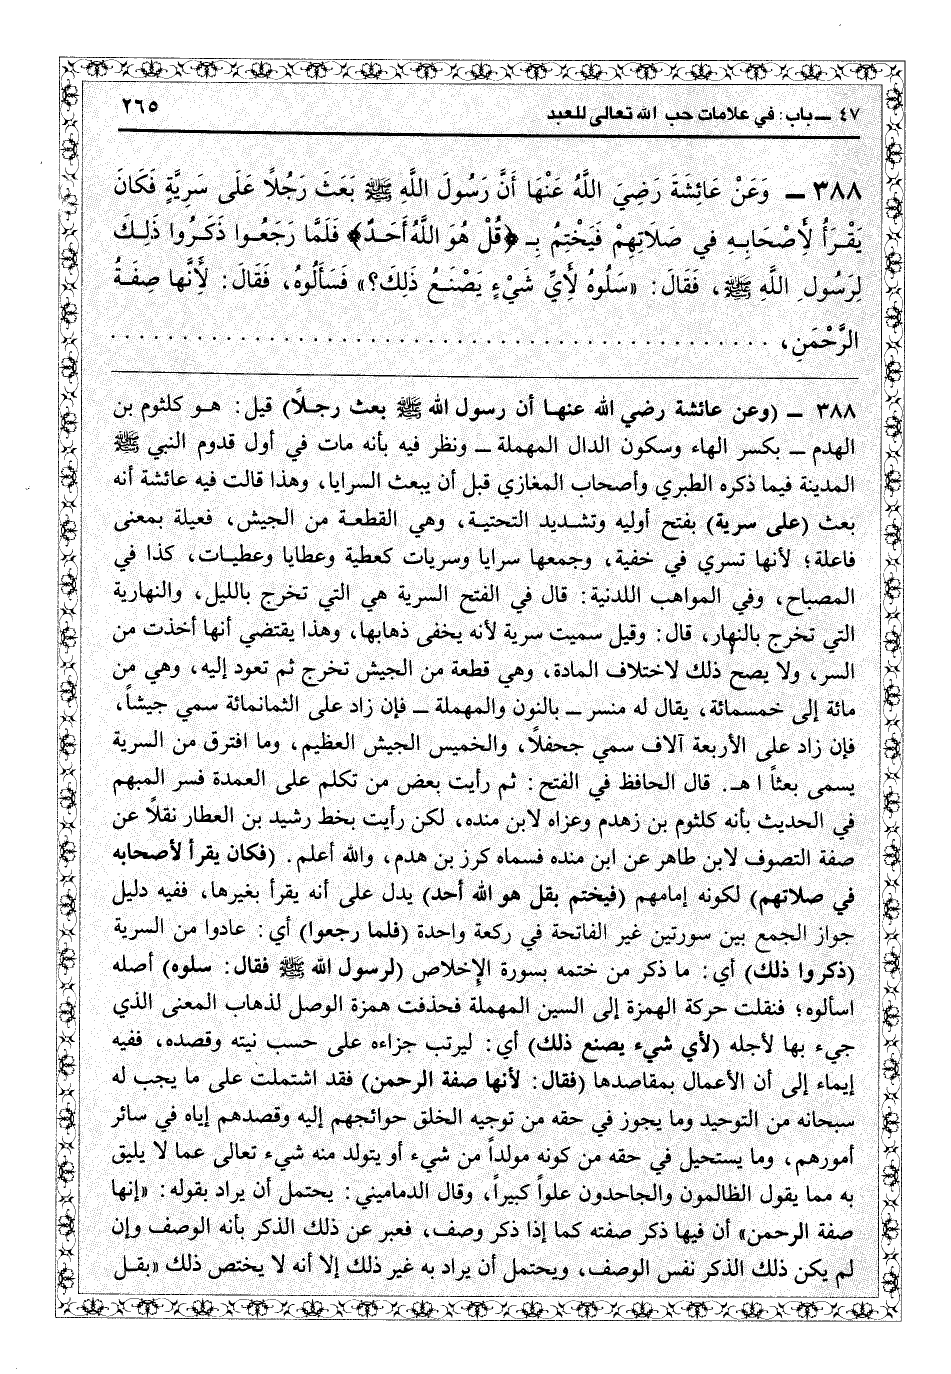 ٤٧ ــ باب: في علامات حب الله تعالى للعبد ٢٦٥
٣٨٨ ــ وَعَنْ عَائِشَةَ رَضِيَ اللَّهُ عَنْهَا أَنَّ رَسُولَ اللَّهِ ﷺ بَعَثَ رَجُلًا عَلَى سَرِيَّةٍ فَكَانَ
يَقْرَأُ لِأَصْحَابِهِ فِي صَلَاتِهِمْ فَيَخْتِمُ بِـ ﴿قُلْ هُوَ اللَّهُ أَحَدٌ﴾ فَلَمَّا رَجَعُوا ذَكَرُوا ذَلِكَ
لِرَسُولِ اللَّهِ ﷺ، فَقَالَ: «سَلُوهُ لِأَيِّ شَيْءٍ يَصْنَعُ ذَلِكَ؟» فَسَأَلُوهُ، فَقَالَ: لِأَنَّها صِفَةُ
الرَّحْمَنِ، . . . . . . . . . . . . . . . . . . . . . . . . . . . . . . . . . . . . . . . . . . . .
٣٨٨ ــ (وعن عائشة رضي الله عنهـا أن رسول الله ﷺ بعث رجـلاً) قيل: هـو كلثوم بن
الهدم ــ بكسر الهاء وسكون الدال المهملة ــ ونظر فيه بأنه مات في أول قدوم النبي ﷺ
المدينة فيما ذكره الطبري وأصحاب المغازي قبل أن يبعث السرايا، وهذا قالت فيه عائشة أنه
بعث (على سرية) بفتح أوليه وتشـديد التحتيـة، وهي القطعـة من الجيش، فعيلة بمعنى
فاعلة؛ لأنها تسري في خفية، وجمعها سرايا وسريات كعطية وعطايا وعطيـات، كذا في
المصباح، وفي المواهب اللدنية: قال في الفتح السرية هي التي تخرج بالليل، والنهارية
التي تخرج بالنهار، قال: وقيل سميت سرية لأنه يخفى ذهابها، وهذا يقتضي أنها أخذت من
السر، ولا يصح ذلك لاختلاف المادة، وهي قطعة من الجيش تخرج ثم تعود إليه، وهي من
مائة إلى خمسمائة، يقال له منسر ــ بالنون والمهملة ــ فإن زاد على الثمانمائة سمي جيشاً،
فإن زاد على الأربعة آلاف سمي جحفلاً، والخميس الجيش العظيم، وما افترق من السرية
يسمى بعثاً اهـ. قال الحافظ في الفتح: ثم رأيت بعض من تكلم على العمدة فسر المبهم
في الحديث بأنه كلثوم بن زهدم وعزاه لابن منده، لكن رأيت بخط رشيد بن العطار نقلاً عن
صفة التصوف لابن طاهر عن ابن منده فسماه كرز بن هدم، والله أعلم. (فكان يقرأ لأصحابه
في صلاتهم) لكونه إمامهم (فيختم بقل هو الله أحد) يدل على أنه يقرأ بغيرها، ففيه دليل
جواز الجمع بين سورتين غير الفاتحة في ركعة واحدة (فلما رجعوا) أي: عادوا من السرية
(ذكروا ذلك) أي: ما ذكر من ختمه بسورة الإخلاص (لرسول الله ﷺ فقال: سلوه) أصله
اسألوه؛ فنقلت حركة الهمزة إلى السين المهملة فحذفت همزة الوصل لذهاب المعنى الذي
جيء بها لأجله (لأي شيء يصنع ذلك) أي: ليرتب جزاءه على حسب نيته وقصده، ففيه
إيماء إلى أن الأعمال بمقاصدها (فقال: لأنها صفة الرحمن) فقد اشتملت على ما يجب له
سبحانه من التوحيد وما يجوز في حقه من توجيه الخلق حوائجهم إليه وقصدهم إياه في سائر
أمورهم، وما يستحيل في حقه من كونه مولداً من شيء أو يتولد منه شيء تعالى عما لا يليق
به مما يقول الظالمون والجاحدون علواً كبيراً، وقال الدماميني: يحتمل أن يراد بقوله: «إنها
صفة الرحمن» أن فيها ذكر صفته كما إذا ذكر وصف، فعبر عن ذلك الذكر بأنه الوصف وإن
لم يكن ذلك الذكر نفس الوصف، ويحتمل أن يراد به غير ذلك إلا أنه لا يختص ذلك «بقـل